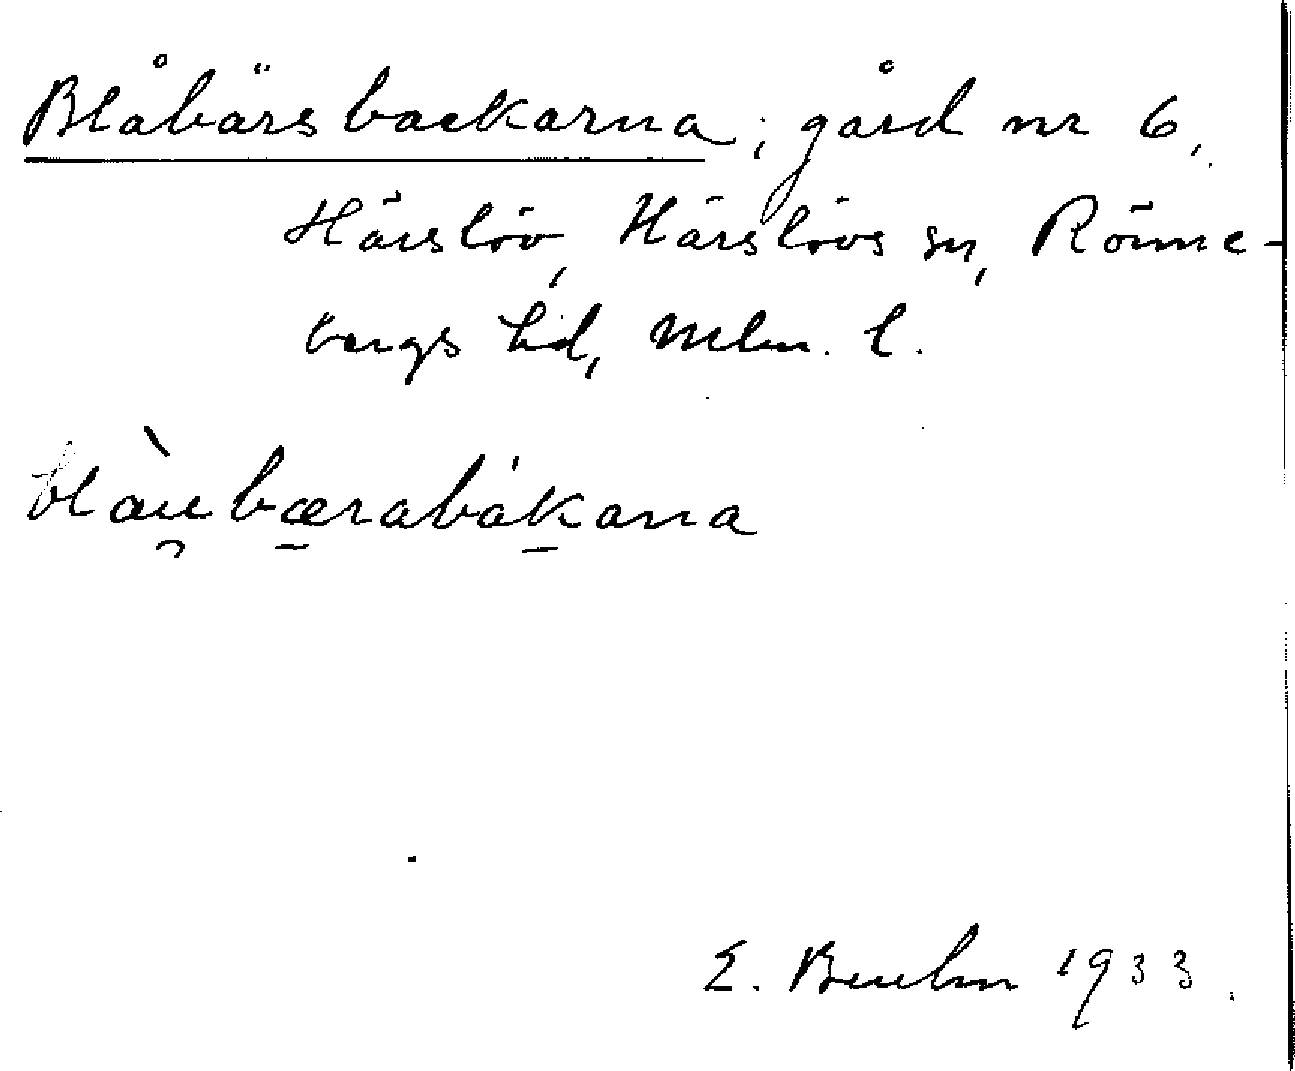 Blåbärsbackarna; gård nr 6,
Härslöv, Härslövs sn, Rönne-
bergs hd, Mlm. l.
blàu̯bæ̱rabák̠ana
E. 1933.